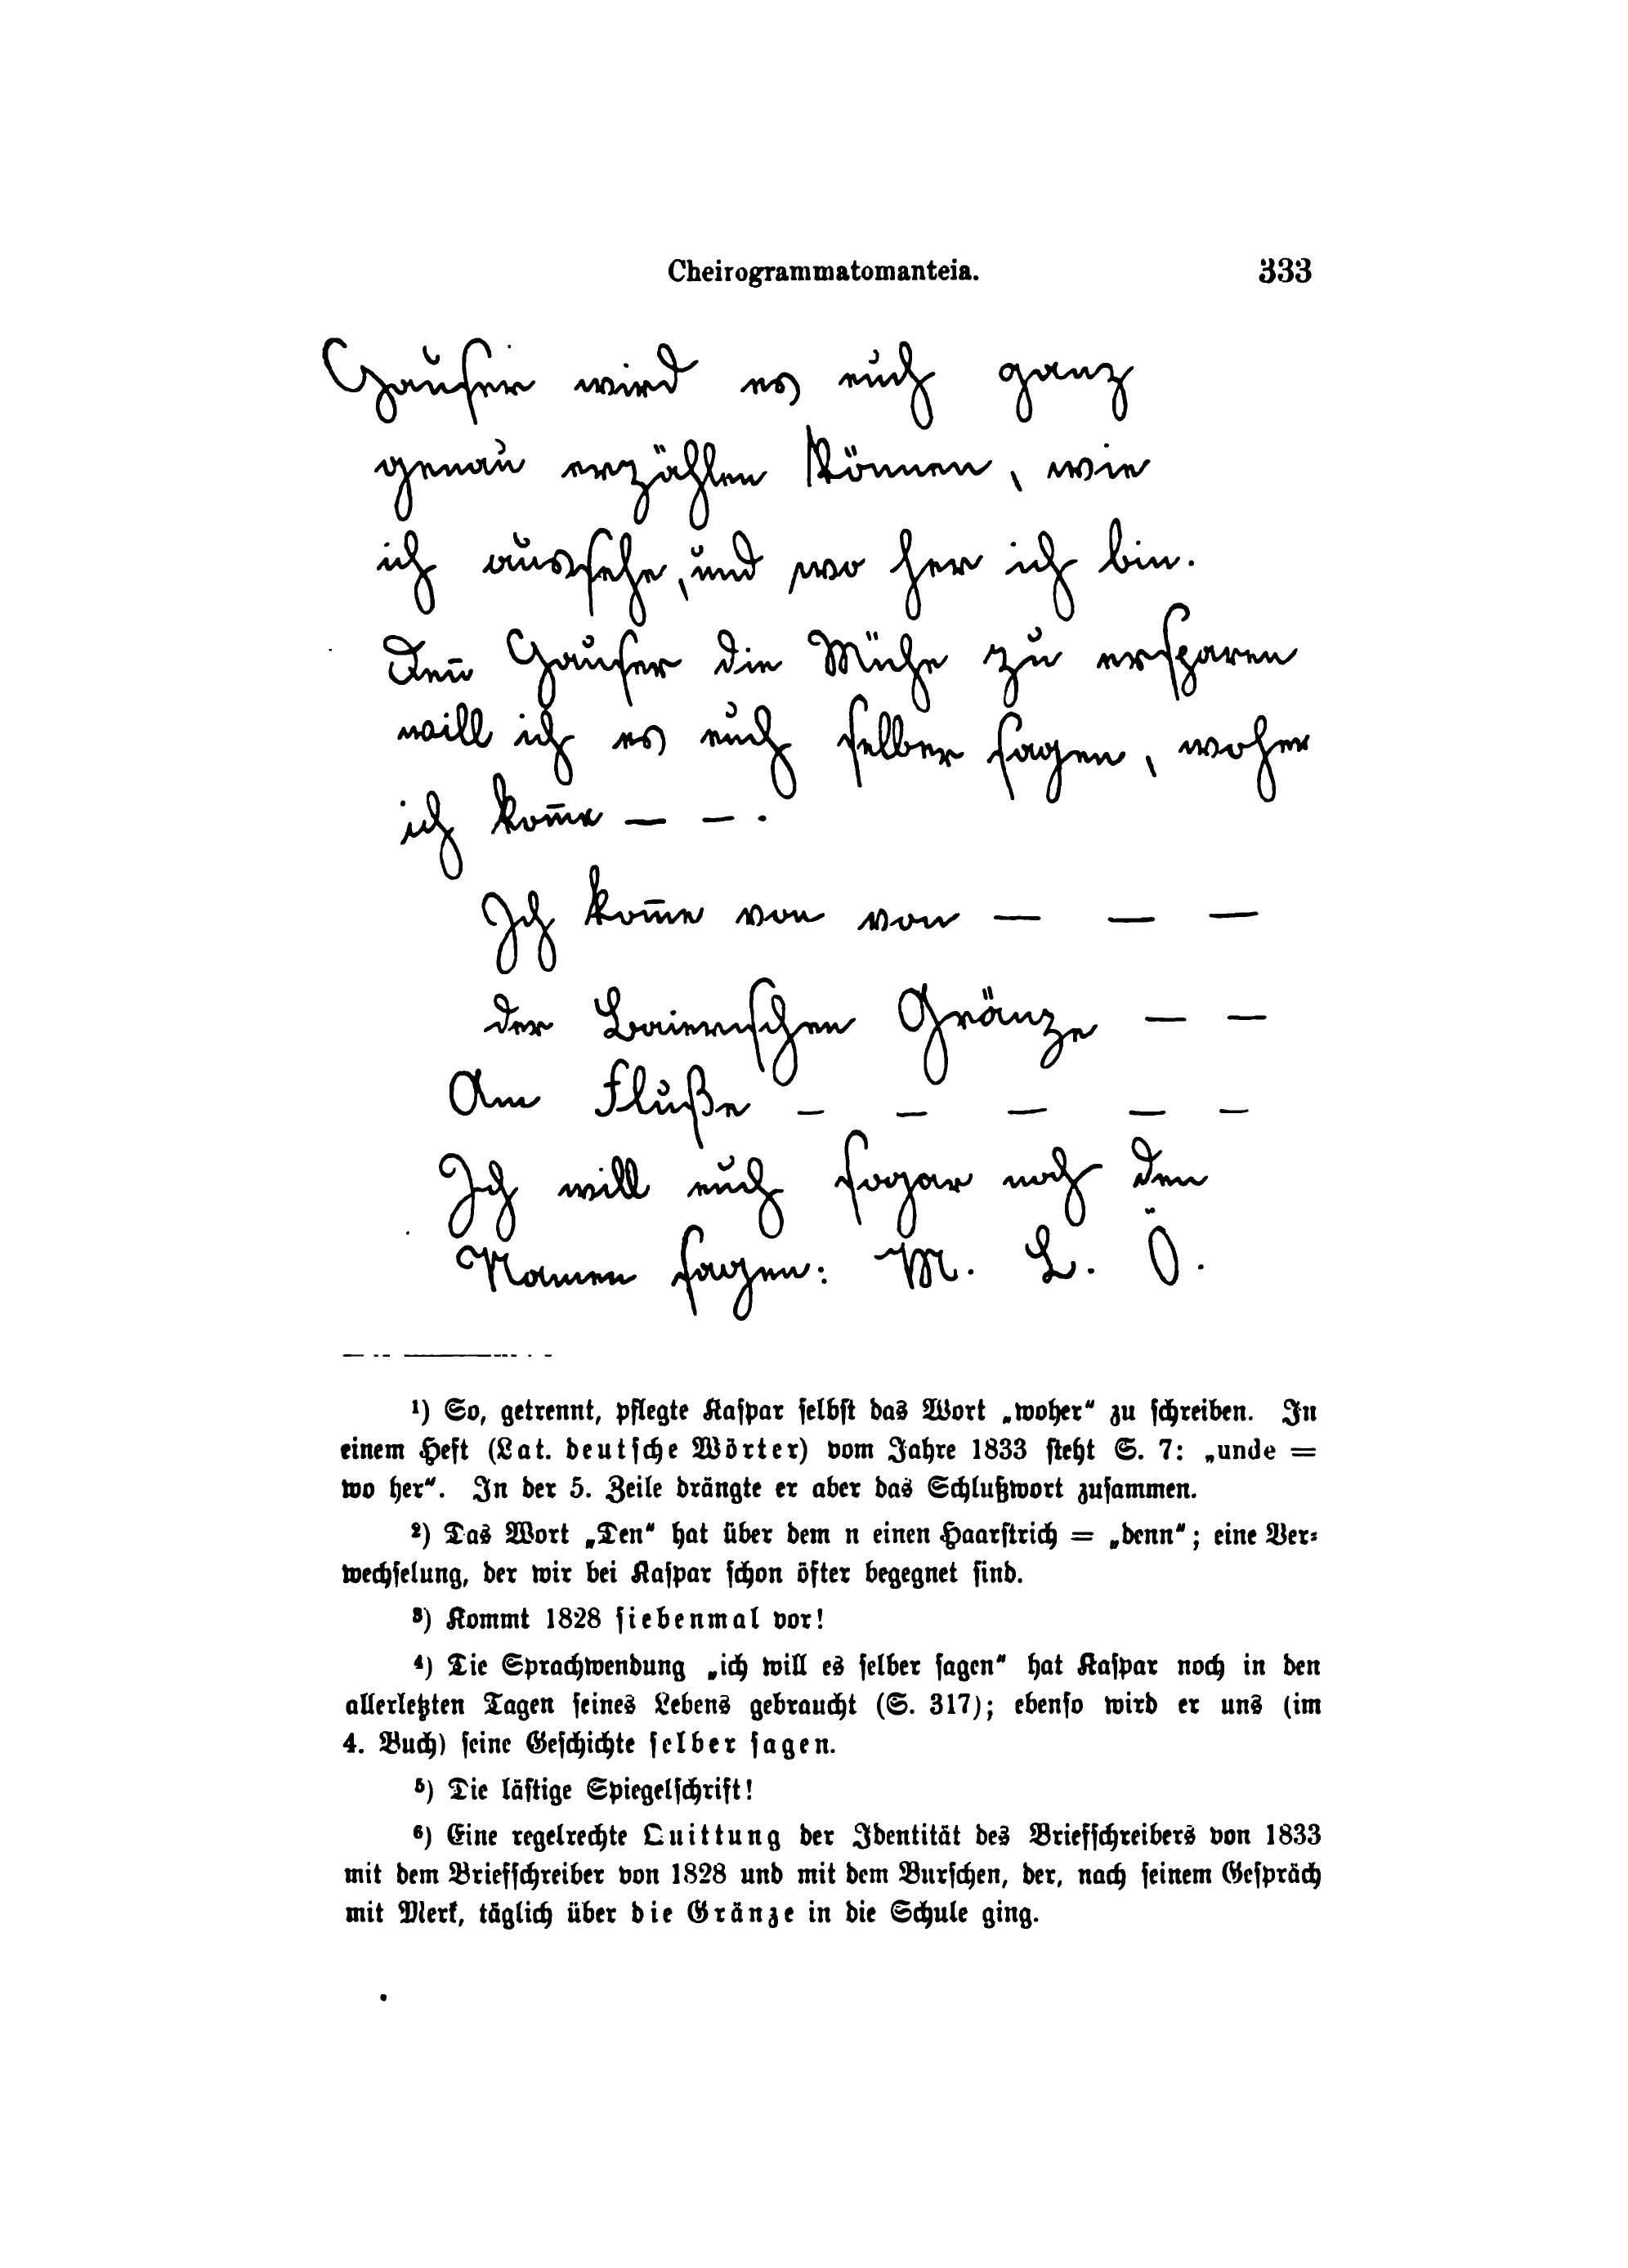 Cheirogrammatomanteia. 333
Hauser wird es euch ganz
genau erzählen können, wie
ich aussehe, und wo her ich bin.
Den̄ Hauser die Mühe zu ersparen
will ich es euch selber sagen, woher
ich kom̄e — — .
Ich kom̄e von von — — —
der Baierischen Gränze — —
Am Fluße — — — — —
Ich will euch sogar noch den
Namen sagen: M. L. Ö.
¹) So, getrennt, pflegte Kaspar selbst das Wort „woher“ zu schreiben. In
einem Heft (Lat. deutsche Wörter) vom Jahre 1833 steht S. 7: „unde =
wo her“. In der 5. Zeile drängte er aber das Schlußwort zusammen.
²) Das Wort „Den“ hat über dem n einen Haarstrich = „denn“; eine Ver-
wechselung, der wir bei Kaspar schon öfter begegnet sind.
³) Kommt 1828 siebenmal vor!
⁴) Die Sprachwendung „ich will es selber sagen“ hat Kaspar noch in den
allerletzten Tagen seines Lebens gebraucht (S. 317); ebenso wird er uns (im
4. Buch) seine Geschichte selber sagen.
⁵) Die lästige Spiegelschrift!
⁶) Eine regelrechte Quittung der Identität des Briefschreibers von 1833
mit dem Briefschreiber von 1828 und mit dem Burschen, der, nach seinem Gespräch
mit Merk, täglich über die Gränze in die Schule ging.